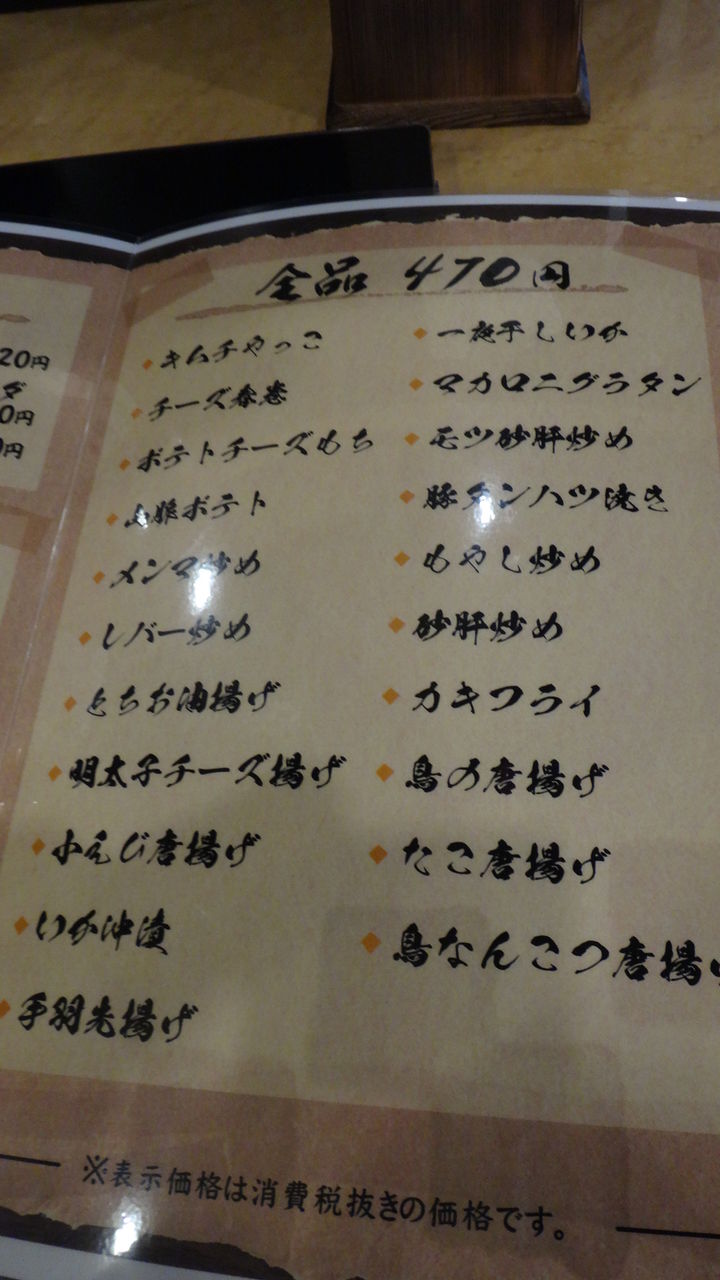 全品 470円
キムチやっこ
チーズ春巻
ポテトチーズもち
ポテト
メンマ炒め
レバー炒め
とちお油揚げ
明太子チーズ揚げ
小えび唐揚げ
いか沖漬
手羽先揚げ
一夜干しいか
マカロニグラタン
モツ砂肝炒め
豚タンハツ焼き
もやし炒め
砂肝炒め
カキフライ
鳥の唐揚げ
たこ唐揚げ
鳥なんこつ唐揚げ
20円
0円
円
※表示価格は消費税抜きの価格です。